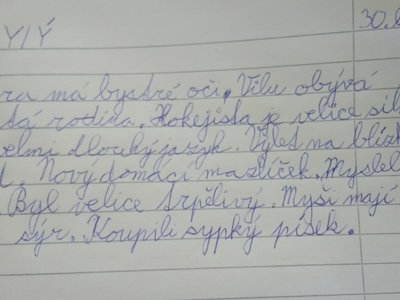 Y/Ý 30.
ra má bystré oči. Vilu obývá
rodina. Hokejista je velice sil
elmi dlouhý jazyk. Výlet na blízk
Nový domácí mazlíček. Myslel
Byl velice trpělivý. Myši mají
sýr. Koupili sypký písek.